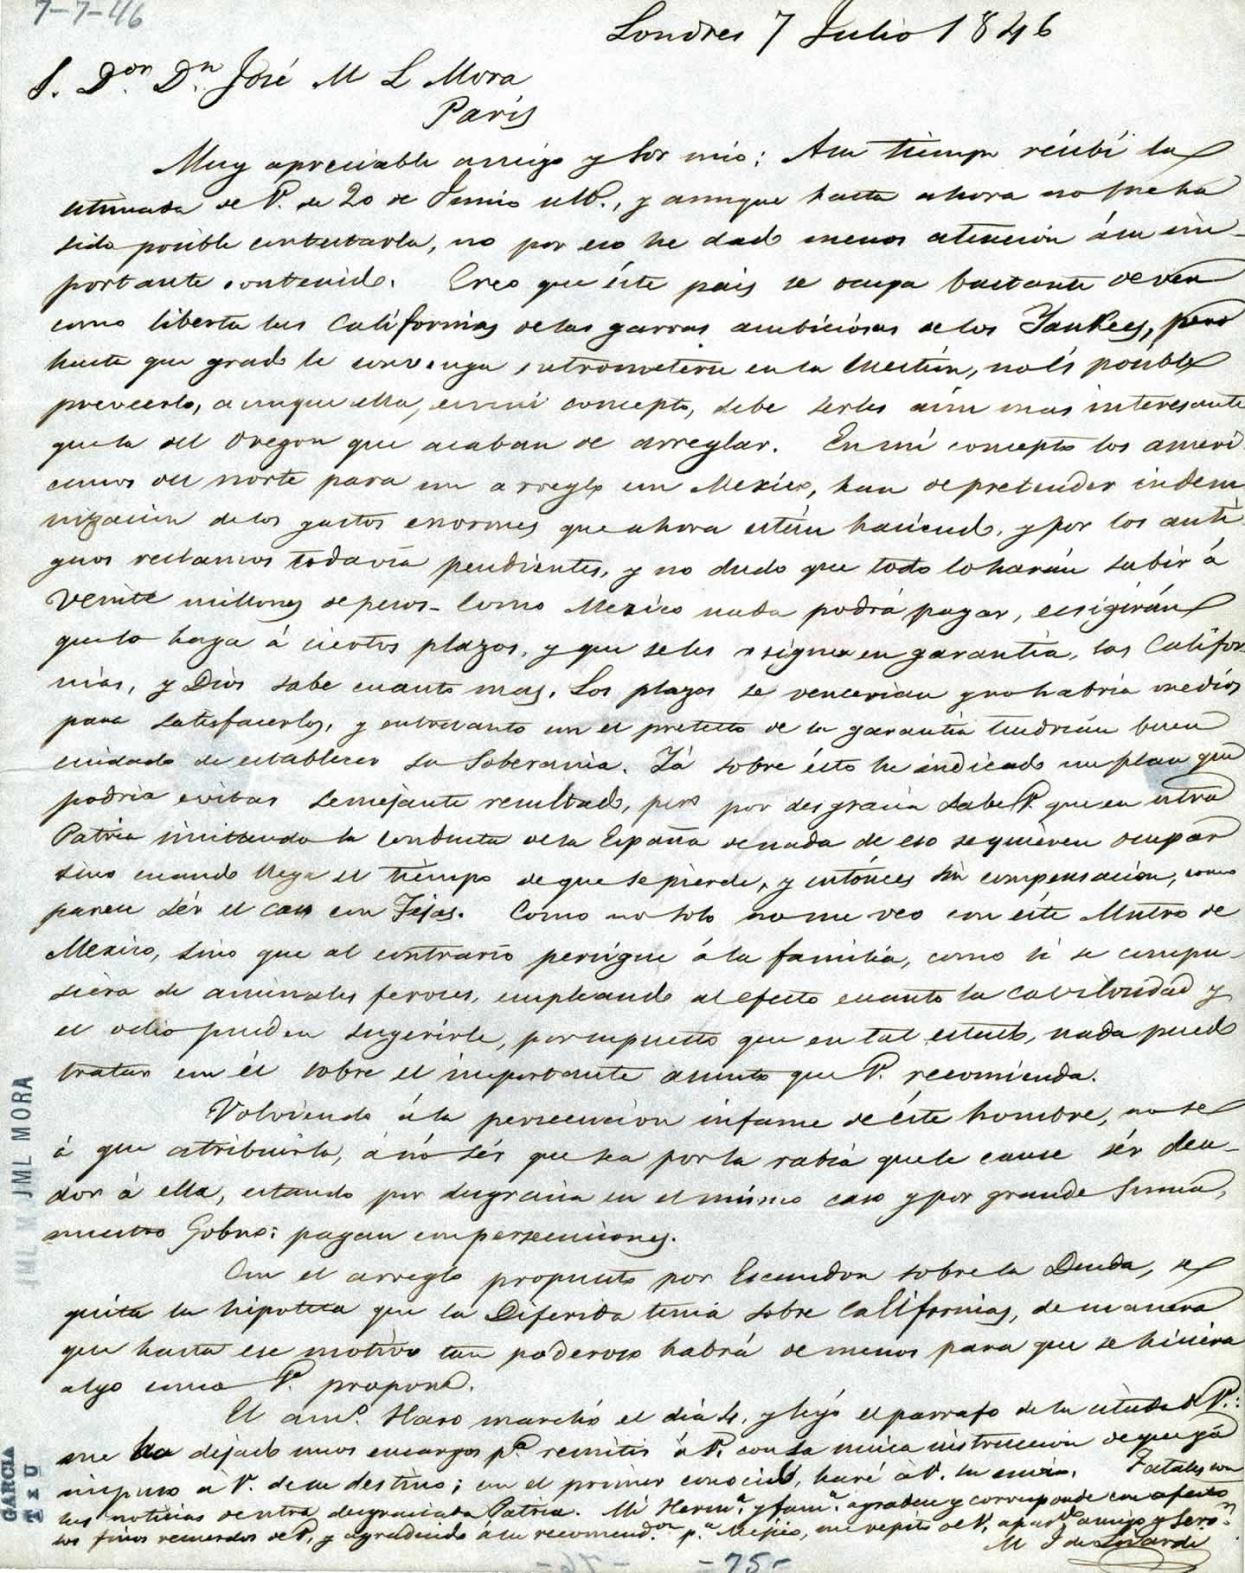 7-7-46
Londres 7 Julio 1846
S. Don Dn José M L Mora
París
Muy apreciable amigo y Sor mio: A su tiempo récibi la
estimada de V. de 20 de Junio ulto., y aunque hasta ahora no me ha
sido posible contestarla, no por eso he dado menos atención á su im-
portante contenido. Creo que éste pais se ocupa bastante de ver
como liberta las Californias de las garras ambiciosas de los Yankees, pero
hasta que grado le convenga entrometerse en la cuestión, no és posible
preveerlo, aunque ella, en mi concepto, debe serles aún mas interesante
que la del Oregon que acaban de arreglar. En mi concepto los ameri
canos del norte para un arreglo con Mexico, han de pretender indem
nizacion de los gastos enormes que ahora están haciendo, y por los anti
guos reclamos todavia pendientes, y no dudo que todo lo harán subir á
veinte millones de pesos- Como Mexico nada podrá pagar, ecsigirán
que lo haga á ciertos plazos, y que se les asignen en garantia, las Califor
nias, y Dios sabe cuanto mas. Los plazos se vencerian y no habria medios
para satisfacerlos, y entretanto con el pretesto de la garantia tendrian buen
cuidado de establecer su Soberania. Yá sobre ésto he indicado un plan que
podria evitar semejante resultado, pero por desgracia sabe V. que en ntra
Patria imittando la conducta de la España de nada de eso se quieren ocupar
sino cuando llega el tiempo de que se pierde, y entónces sin compensacion, como
parece sér el caso con Téjas. Como no solo no me veo con éste Mntro de
Mexico, sino que al contrario persigue á la familia, como si se compu-
siera de animales feroces, empleando al efecto cuanto la cavilosidad y
el odio pueden sugerirle, por supuesto que en tal estado, nada puedo
tratar con él sobre el importante asunto que V. recomienda.
Volviendo á la persecucion infame de éste hombre, no se
á que atribuirla, á no sér que sea por la rabia que le cause sér deu-
dor á ella, estando por desgracia en el mismo caso y por grande suma,
nuestro Gobno: pagan con persecuciones.
Con el arreglo propuesto por Escandon sobre la Deuda, se
quita la hipoteca que la Diferida tenia sobre Californias, de manera
que hasta ese motivo tan poderoso habrá de menos para que se hiciera
algo como V. propone.
El amo. Haro marchó el dia 4. y leyó el parrafo de la citada de V.:
me ha dejado unos encargos pa. remitir á V. con la unica instruccion de que ya
impuso a V. de su destino; con el primer conocido, haré á V. su envio. Fatales son
las noticias de ntra desgraciada Patria. Mi Herma. y fama. agradecen y corresponden con afecto
los finos recuerdos de V, y agradeciendo á su recomendon. pa. Mejico, me repito de V, apasdo. amigo y Servor
M J de Lizardi
-75-
-76-
JML M JML MORA
GARCIA
T x U